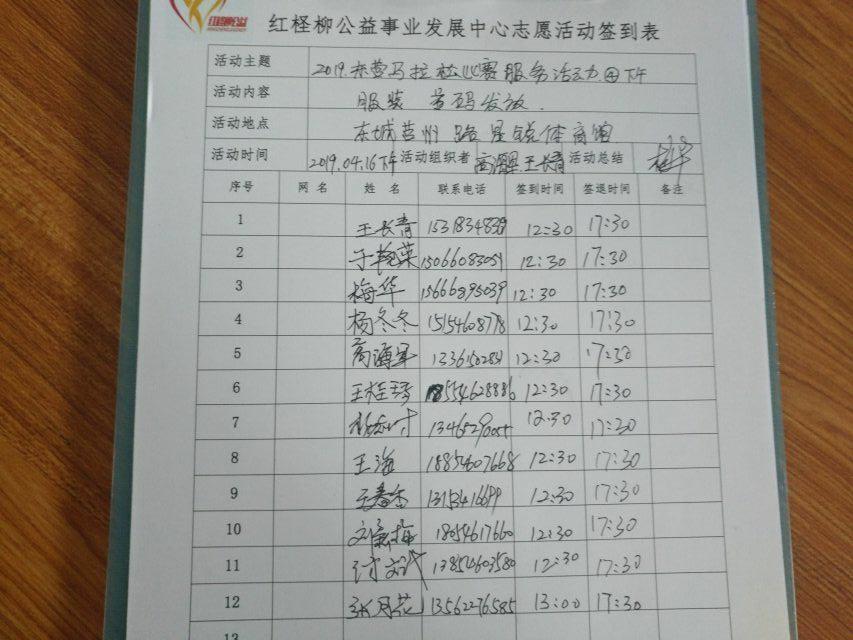 红柽柳公益事业发展中心志愿活动签到表
活动主题 2019.黄营马拉松比赛服务活动④下午
活动内容 服装 号码发放.
活动地点 东城莒州路星锐体育馆
活动时间 2019.04.16下午 活动组织者 王长青 活动总结
序号 网名 姓名 联系电话 签到时间 签退时间 备注
1 王长青 12:30 17:30
2 于艳菜 15066083051 12:30 17:30
3 梅华 15666895039 12:30 17:30
4 杨冬冬 15154608778 12:30 17:30
5 商海军 12:30 17:30
6 王桂琴 18554628886 12:30 17:30
7 12:30 17:30
8 王海 18854607668 12:30 17:30
9 王春杰 13153416699 12:30 17:30
10 18054617660 12:30 17:30
11 13854603580 12:30 17:30
12 张月花 13562276585 13:00 17:30
13